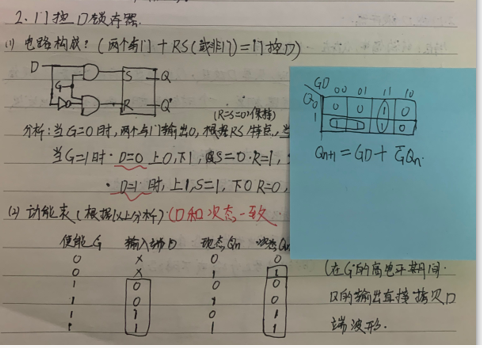 2. 门控D锁存器.
(1) 电路构成: (两个与门 + RS(或非门) = 门控D)
D
G
S
Q
R
Q'
(R=S=0'保持)
分析: 当G=0时, 两个与门输出0, 根据RS特点, 当
当G=1时. D=0 上0, 下1, S=0. R=1,
· D=1 时, 上1, S=1, 下0 R=0,
(2) 功能表 (根据以上分析) (D和次态一致)
使能G 输入端D 现态Qn 次态Qn
0 × 0 0
0 × 1 1
1 0 0 0
1 0 1 0
1 1 0 1
1 1 1 1
GD
Qn
00 01 11 10
0 0 0 1 0
1 1 1 1 0
Qn+1 = GD + G̅Qn.
(在G的高电平期间.
Q的输出直接拷贝D
端波形.